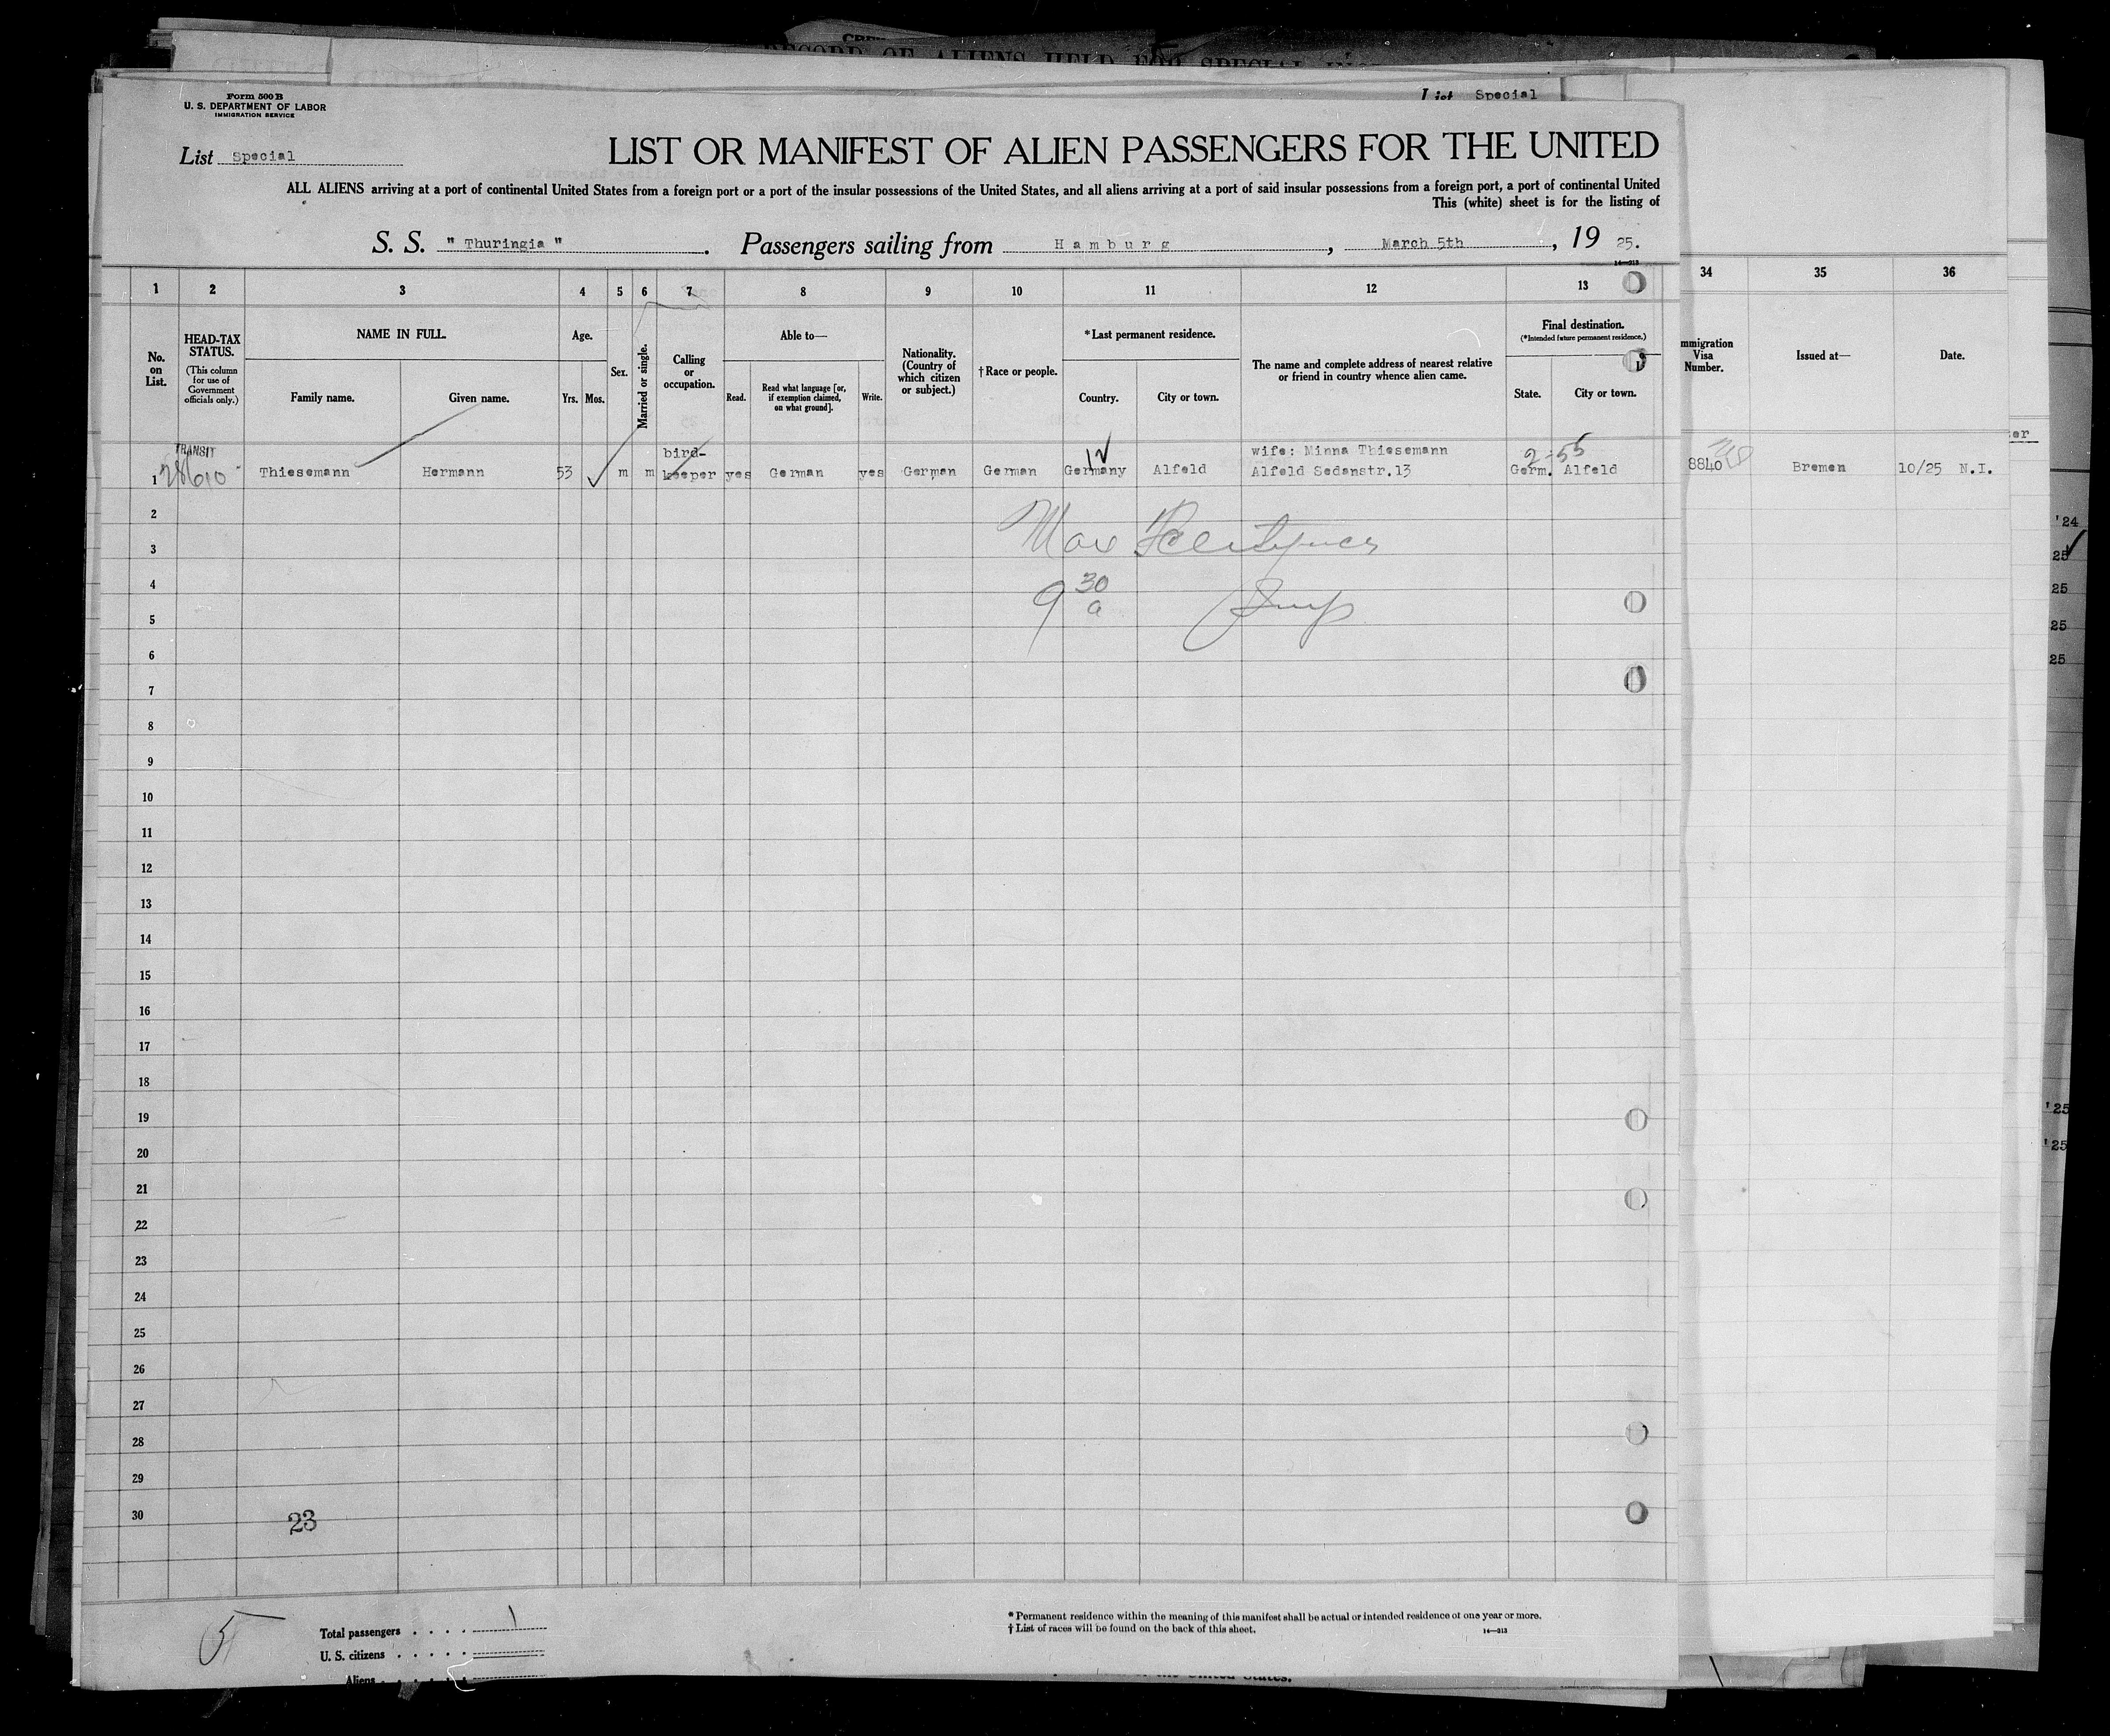 RECORD OF ALIENS HELD FOR SPECIAL
List Special
Form 500 B
U. S. DEPARTMENT OF LABOR
IMMIGRATION SERVICE
List Special
LIST OR MANIFEST OF ALIEN PASSENGERS FOR THE UNITED
ALL ALIENS arriving at a port of continental United States from a foreign port or a port of the insular possessions of the United States, and all aliens arriving at a port of said insular possessions from a foreign port, a port of continental United
This (white) sheet is for the listing of
S. S. " Thuringia ". Passengers sailing from Hamburg, March 5th, 19 25.
14—213
1 2 3 4 5 6 7 8 9 10 11 12 13 34 35 36
No. on List.
HEAD-TAX STATUS.
(This column for use of Government officials only.)
NAME IN FULL.
Family name. Given name.
Age.
Yrs. Mos.
Sex.
Married or single.
Calling or occupation.
Able to—
Read. Read what language [or, if exemption claimed, on what ground]. Write.
Nationality. (Country of which citizen or subject.)
† Race or people.
* Last permanent residence.
Country. City or town.
The name and complete address of nearest relative or friend in country whence alien came.
Final destination.
(*Intended future permanent residence.)
State. City or town.
mmigration Visa Number.
Issued at—
Date.
TRANSIT
bird-
12
wife: Minna Thiesemann
2-55
1 28610 Thiesemann Hermann 53 m m keeper yes German yes German German Germany Alfeld Alfeld Sedanstr.13 Germ. Alfeld 8840 Bremen 10/25 N.I.
2
3
4
5
6
7
8
9
10
11
12
13
14
15
16
17
18
19
20
21
22
23
24
25
26
27
28
29
30
Max
9 30 a
'24
25
25
25
25
'25
'25
23
5
Total passengers . . . . 1
U. S. citizens . . . . .
Aliens . . . . .
* Permanent residence within the meaning of this manifest shall be actual or intended residence of one year or more.
† List of races will be found on the back of this sheet.
14—213
the United States.